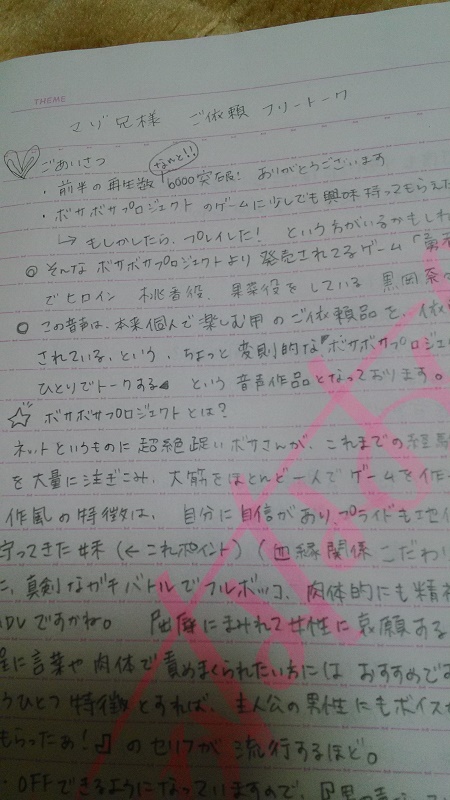 THEME
マゾ兄様 ご依頼 フリートーク
ごあいさつ
なんと!!
・前半の再生数 6000突破! ありがとうございます
・ボサボサプロジェクト のゲームに少しでも興味持ってもらえた
↳ もしかしたら、プレイした! という方がいるかもしれ
◎ そんな ボサボサプロジェクトより 発売されてるゲーム「
でヒロイン 桃香役、果菜役をしている 黒岡奈
○ この音声は、本来個人で楽しむ用のご依頼品を、依
されている、という、ちょっと変則的な『ボサボサプロジェ
ひとりでトークする という 音声作品となっております。
☆ ボサボサプロジェクトとは?
ネットというものに 超絶疎い ボサさんが、これまでの経
を大量に注ぎこみ、大筋をほとんど一人で ゲームを作
作風の特徴は、自分に自信があり、プライドも
守ってきた 妹 (←これポイント) (血縁関係 こだわ
、真剣なガチバトルでフルボッコ、肉体的にも精
ADVですかね。 屈辱にまみれて女性に哀願する
に言葉や肉体で責めまくられたい方には おすすめで
うひとつ 特徴とすれば、主人公の男性にもボイス
もらったぁ!』のセリフが 流行するほど。
・OFFできるようになっていますので、